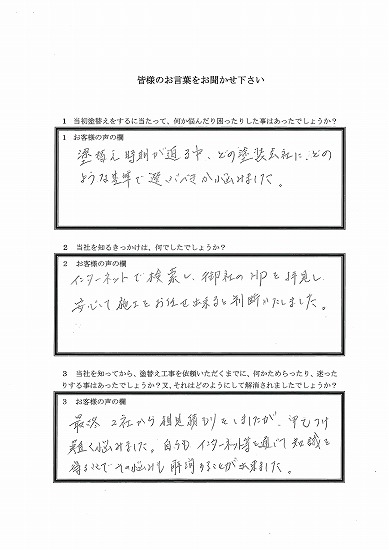 皆様のお言葉をお聞かせ下さい
1 当初塗替えをするに当たって、何か悩んだり困ったりした事はあったでしょうか？
1 お客様の声の欄
塗替え時期が迫る中、どの塗装会社に、どの
ような基準で選ぶべきか悩みました。
2 当社を知るきっかけは、何でしたでしょうか？
2 お客様の声の欄
インターネットで検索し、御社のHPを拝見し、
安心して施工をお任せ出来ると判断いたしました。
3 当社を知ってから、塗替え工事を依頼いただくまでに、何かためらったり、迷った
りする事はあったでしょうか？又、それはどのようにして解消されましたでしょうか？
3 お客様の声の欄
最終2社から相見積もりをしましたが、甲乙つけ
難く悩みました。自らも インターネット等を通じて知識を
得ることでその悩みも解消することが出来ました。